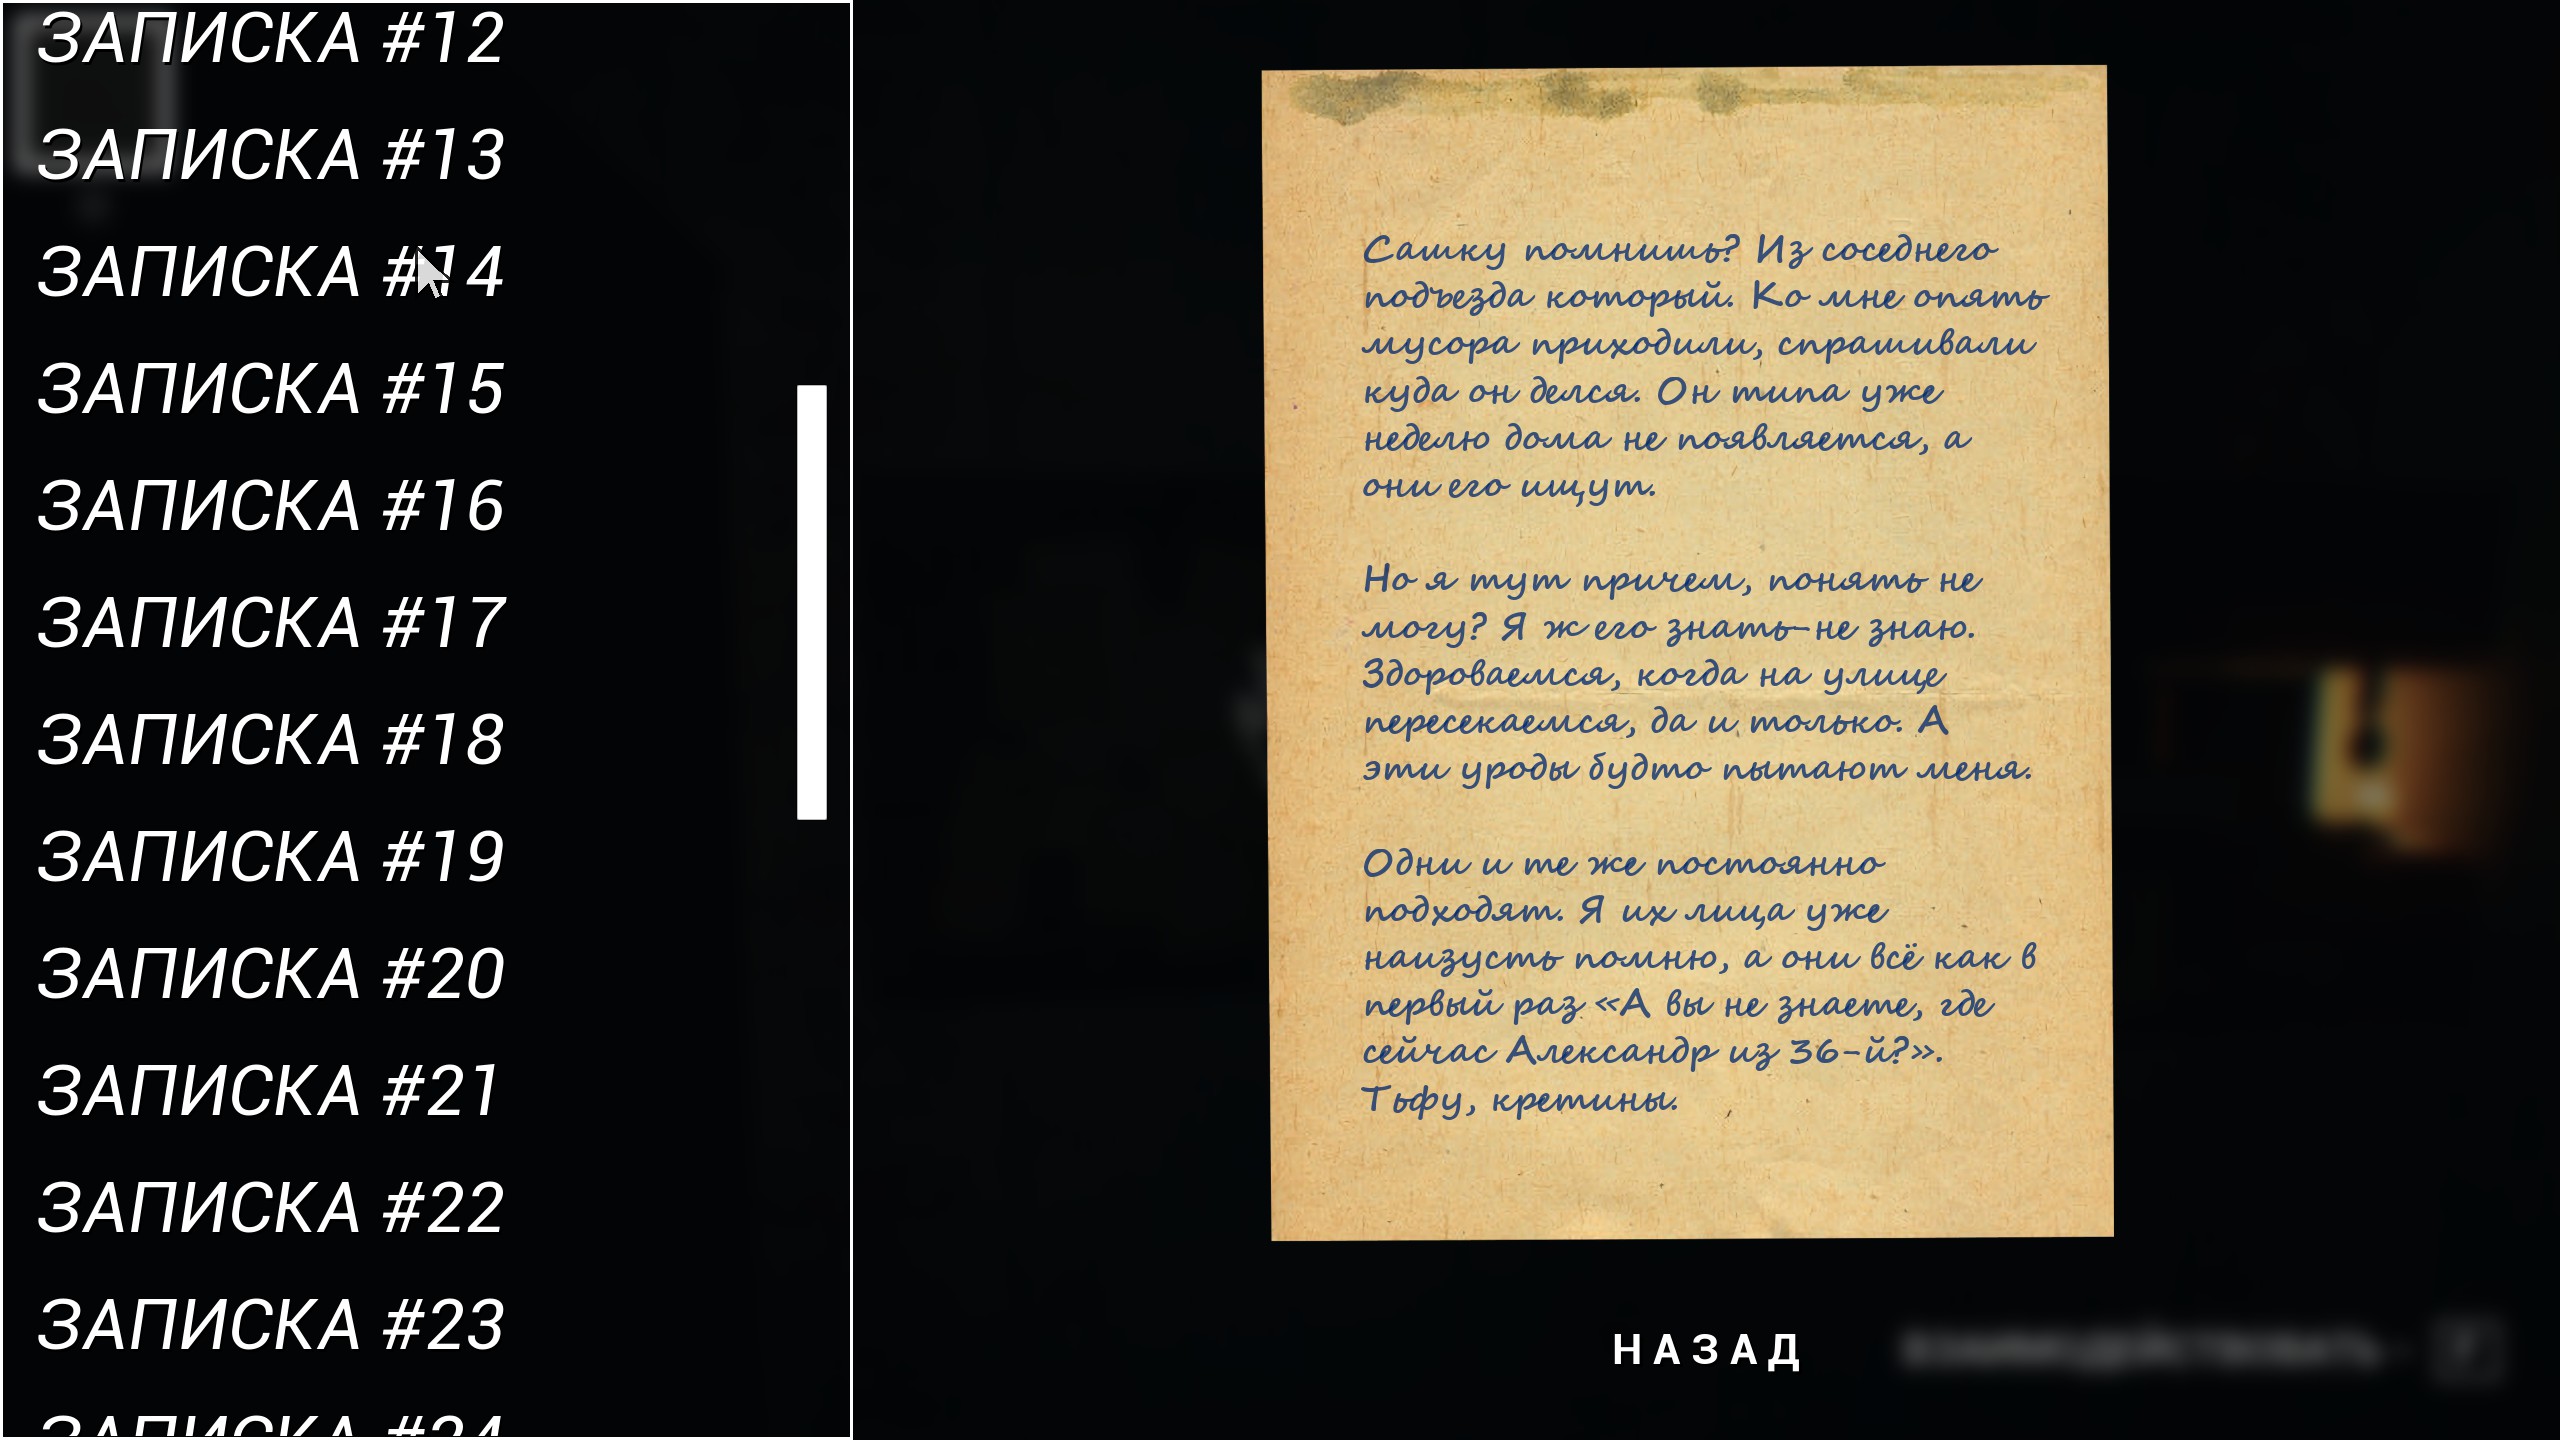 ЗАПИСКА #12
ЗАПИСКА #13
ЗАПИСКА #14
ЗАПИСКА #15
ЗАПИСКА #16
ЗАПИСКА #17
ЗАПИСКА #18
ЗАПИСКА #19
ЗАПИСКА #20
ЗАПИСКА #21
ЗАПИСКА #22
ЗАПИСКА #23
ЗАПИСКА #24
Сашку помнишь? Из соседнего
подъезда который. Ко мне опять
мусора приходили, спрашивали
куда он делся. Он типа уже
неделю дома не появляется, а
они его ищут.
Но я тут причем, понять не
могу? Я ж его знать-не знаю.
Здороваемся, когда на улице
пересекаемся, да и только. А
эти уроды будто пытают меня.
Одни и те же постоянно
подходят. Я их лица уже
наизусть помню, а они всё как в
первый раз «А вы не знаете, где
сейчас Александр из 36-й?».
Тьфу, кретины.
НАЗАД
ВЗАИМОДЕЙСТВОВАТЬ